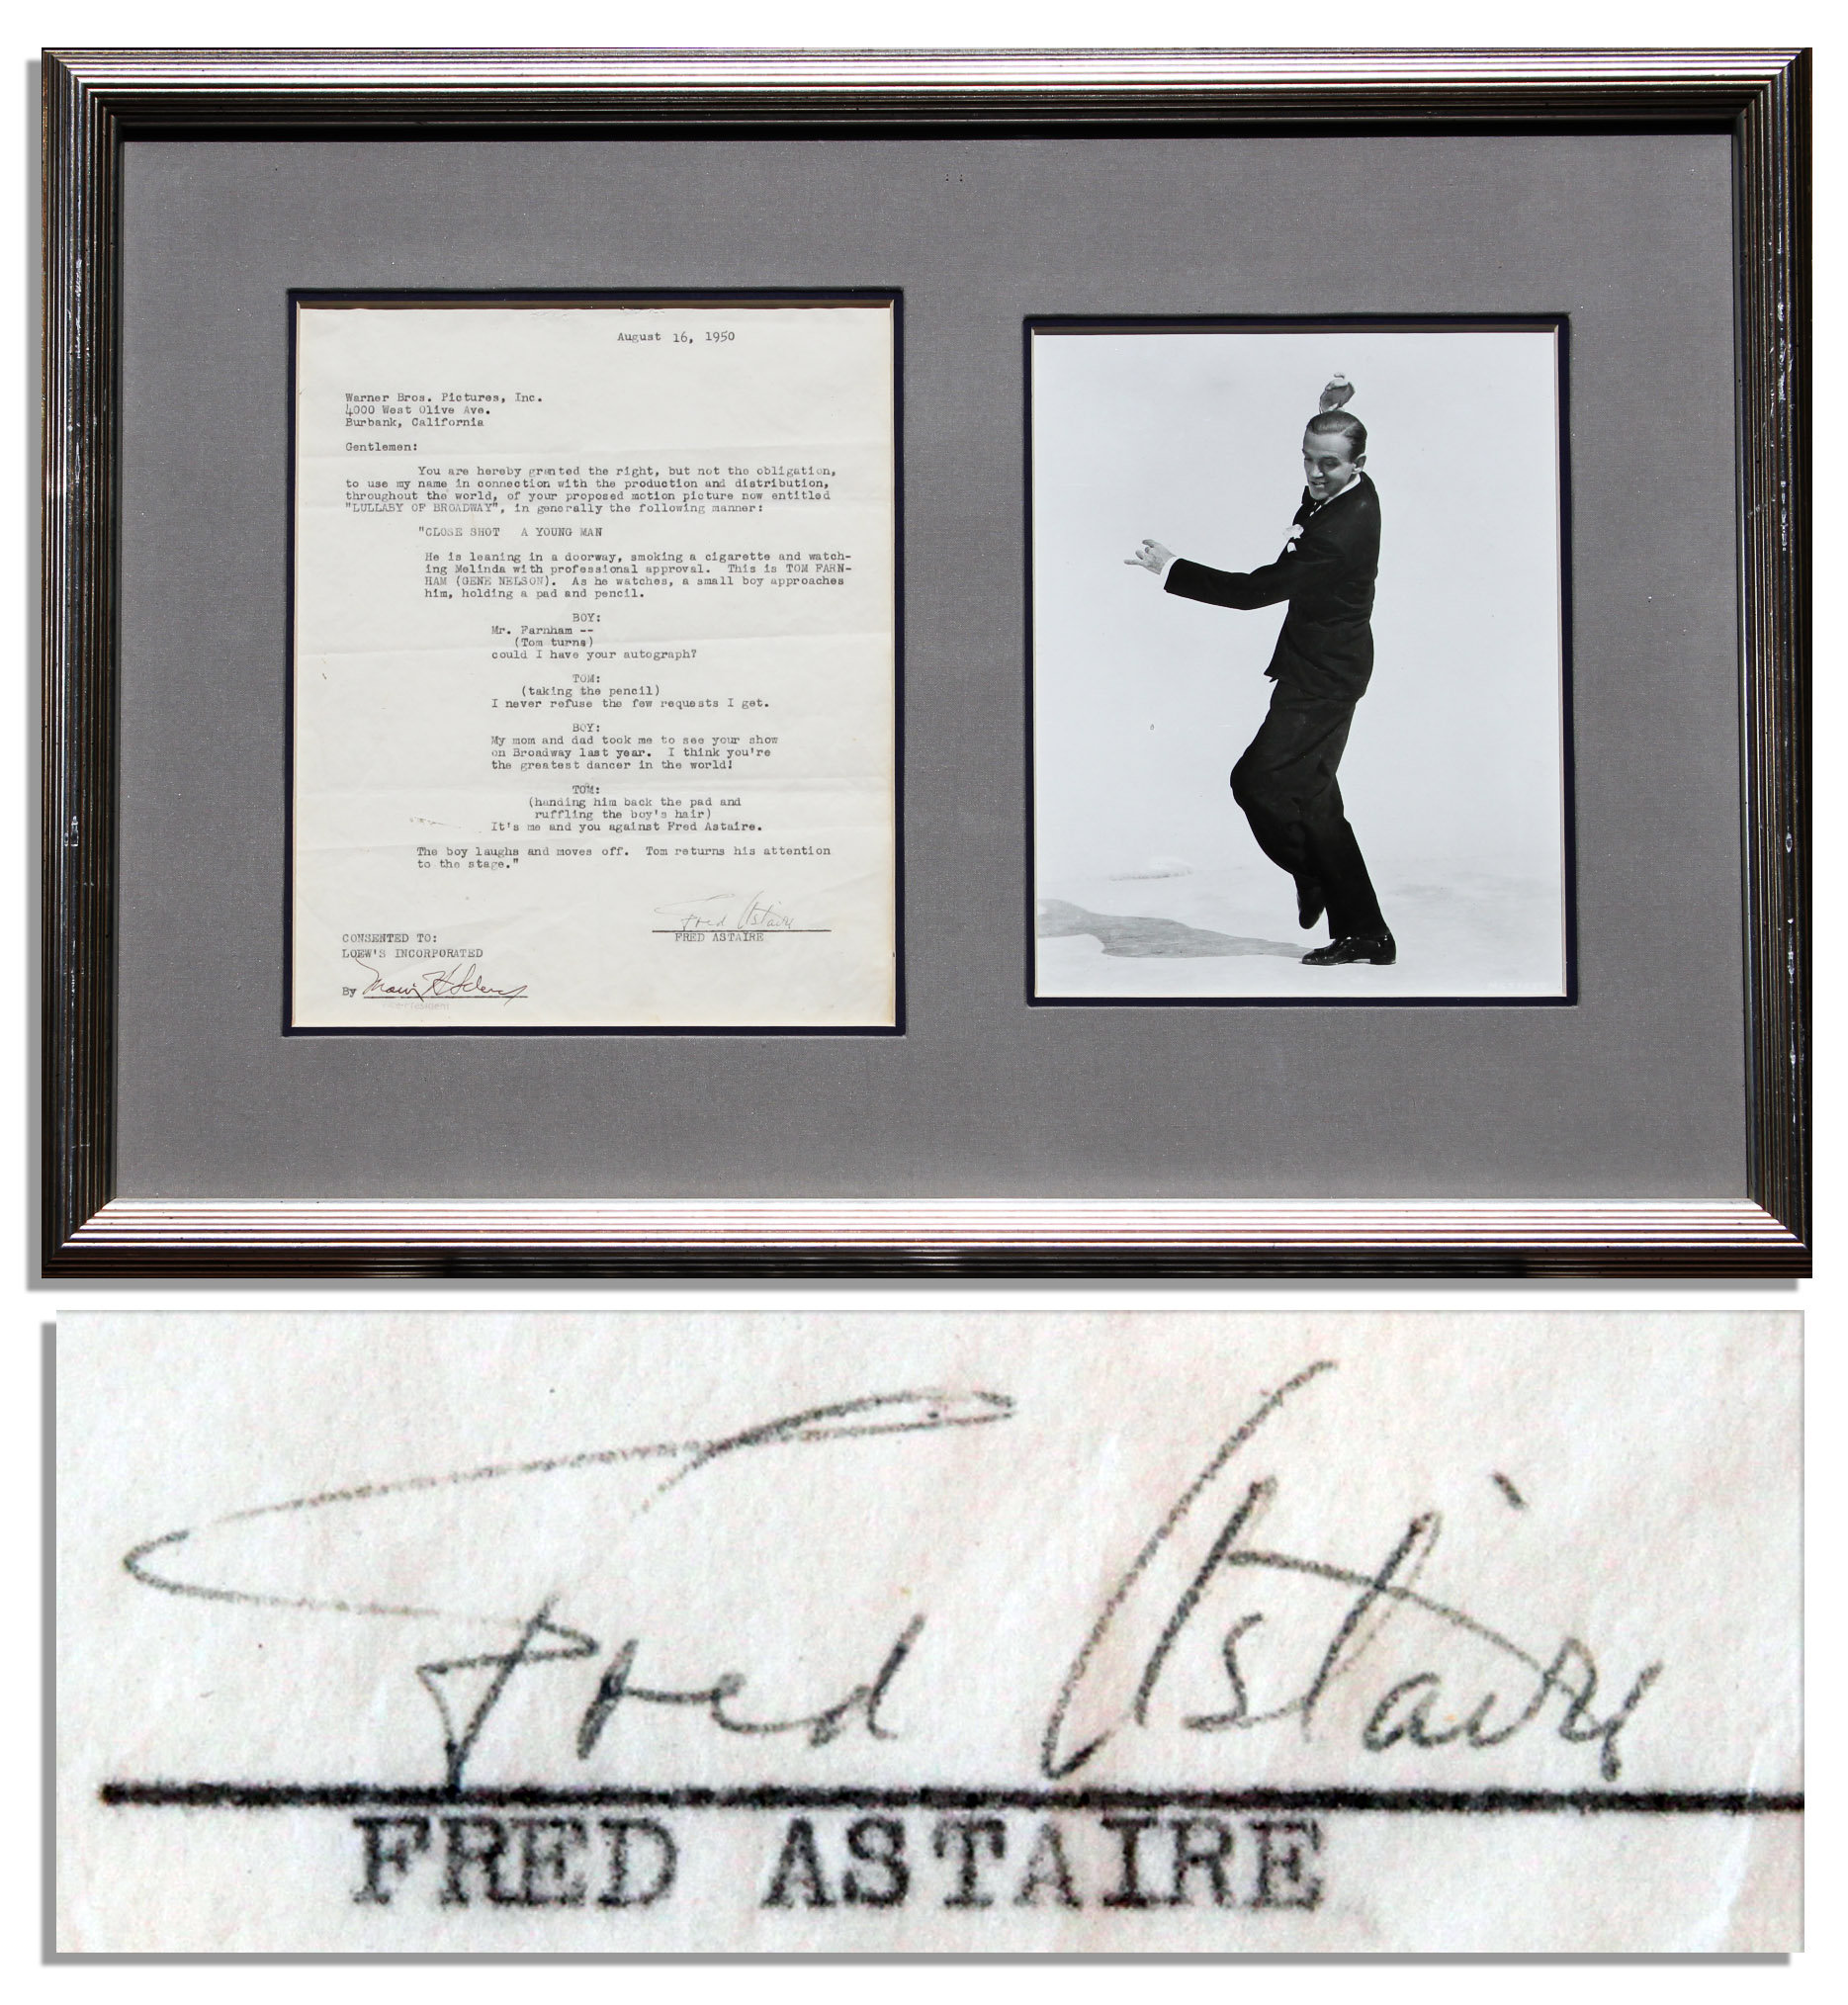 August 16, 1950
Warner Bros. Pictures, Inc.
4000 West Olive Ave.
Burbank, California
Gentlemen:
You are hereby granted the right, but not the obligation,
to use my name in connection with the production and distribution,
throughout the world, of your proposed motion picture now entitled
"LULLABY OF BROADWAY", in generally the following manner:
"CLOSE SHOT A YOUNG MAN
He is leaning in a doorway, smoking a cigarette and watch-
ing Melinda with professional approval. This is TOM FARN-
HAM (GENE NELSON). As he watches, a small boy approaches
him, holding a pad and pencil.
BOY:
Mr. Farnham --
(Tom turns)
could I have your autograph?
TOM:
(taking the pencil)
I never refuse the few requests I get.
BOY:
My mom and dad took me to see your show
on Broadway last year. I think you're
the greatest dancer in the world!
TOM:
(handing him back the pad and
ruffling the boy's hair)
It's me and you against Fred Astaire.
The boy laughs and moves off. Tom returns his attention
to the stage."
Fred Astaire
FRED ASTAIRE
CONSENTED TO:
LOEW'S INCORPORATED
By
Vice-President
Fred Astaire
FRED ASTAIRE